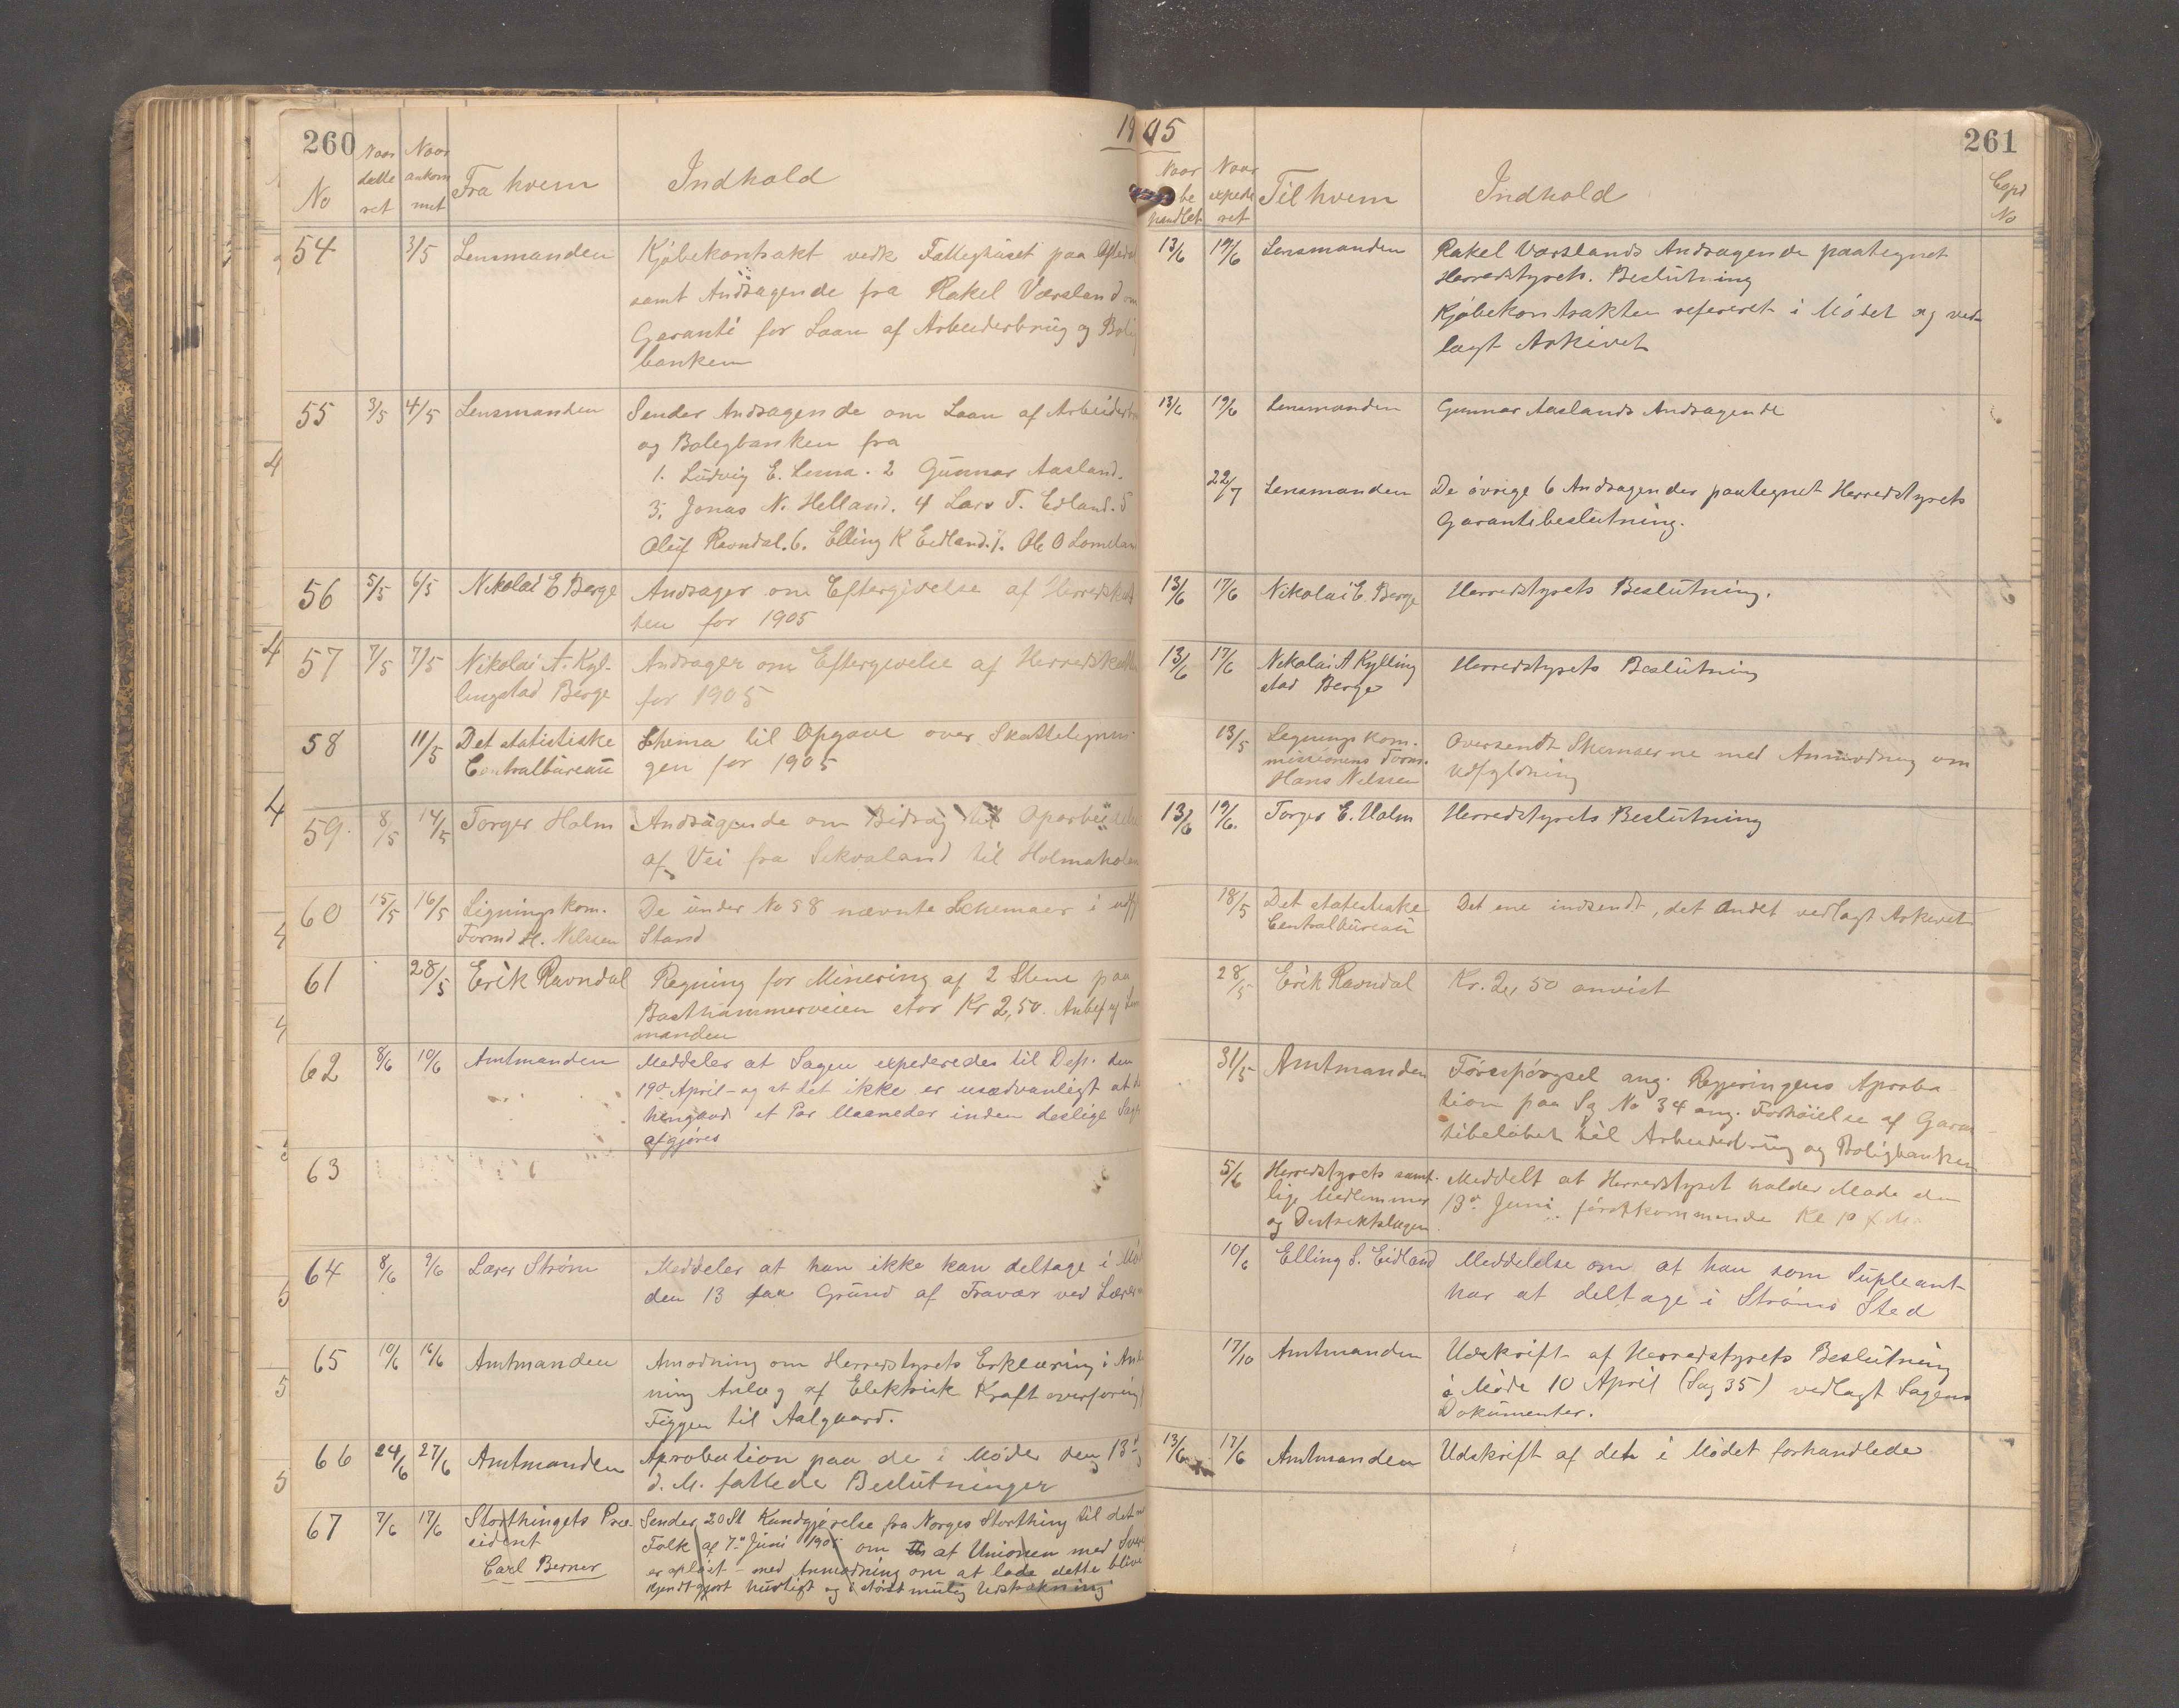 260
1905
No
Naar datteret
Naar ankommet
Fra hvem
Indhold
54
3/5
Lensmanden
Kjøbekontrakt vedk Fattighuset paa
samt Andragende fra Rakel Værsland om
Garanti for Laan af Arbeiderbrug og Bolig
banken
55
3/5
4/5
Lensmanden
Sender Andragende om Laan af Arbeiderbru
og Boligbanken fra
1. Ludvig E. Lima. 2 Gunnar Aasland.
3. Jonas N. Helland. 4 Lars T. Edland. 5
Oluf Ravndal. 6. Elling K Eidland. 7. Ole O Lomeland
56
5/5
6/5
Nikolai E Berge
Andrager om Eftergivelse af Herredskat
ten for 1905
57
7/5
7/5
Nikolai A. Kyl-
lingstad Berge
Andrager om Eftergivelse af Herredskatten
for 1905
58
11/5
Det statistiske
Centralbureau
Schema til Opgave over Skattelignin-
gen for 1905
59
8/5
14/5
Torger Holm
Andragende om Bidrag til Oparbeidelse
af Vei fra Sikvaland til Holmaholen
60
15/5
16/5
Ligningskom.
Formd H. Nilssen
De under No 58 nævnte Schemaer i udf
Stand
61
28/5
Erik Ravndal
Regning for Minering af 2 Stene paa
Basthammerveien stor Kr 2,50. Anbef af Lens
manden
62
8/6
10/6
Amtmanden
Meddeler at Sagen expederedes til Dep. den
19de April - og at det ikke er usædvanligt at
hengaar et Par Maaneder inden deslige Sager
afgjøres
63
64
8/6
9/6
Lærer Strøm
Meddeler at han ikke kan deltage i Mød
den 13 paa Grund af Fravær ved Lærer
65
10/6
16/6
Amtmanden
Amodning om Herredstyrets Erklæring i
ning Anlæg af Elektrisk Kraft overføring
Figgen til Aalgaard.
66
24/6
27/6
Amtmanden
Aprobation paa de i Møde den 13de
d. M. fattede Beslutninger
67
7/6
17/6
Storthingets Præ-
sident
Carl Berner
Sender 20 St Kundgjørelse fra Norges Storthing til det
Folk af 7de Juni 1905 om at Unionen med Sver
er opløst - med Anmodning om at lade dette blive
kjendtgjort hurtigt og i størst mulig Udstrækning
261
Naar behandlet
Naar expederet
Til hvem
Indhold
No
13/6
19/6
Lensmanden
Rakel Værslands Andragende paategnet
Herredstyrets. Beslutning
Kjøbekontrakten refereret i Mødet og ved-
lagt Arkivet
13/6
19/6
Lensmanden
Gunnar Aaslands Andragende
22/7
Lensmanden
De øvrige 6 Andragender paategnet Herredstyrets
Garantibeslutning.
13/6
17/6
Nikolai E. Berge
Herredstyrets Beslutning.
13/6
17/6
Nikolai A Kylling
stad Berge
Herredstyrets Beslutning
13/5
Ligningskom-
missionens Form.
Hans Nilssen
Oversendt Skemaerne med Anmodning om
Udfyldning
13/6
19/6.
Torger E. Holm
Herredstyrets Beslutning
18/5
Det statistiske
Centralbureau
Det ene indsendt, det Andet vedlagt Arkivet
28/5
Erik Ravndal
Kr. 2, 50 anvist
31/5
Amtmanden
Førespørgsel ang. Regjeringens Aproba-
tion paa Sg No 34 ang. Forhøielse af Garan
tibeløbet til Arbeiderbrug og Boligbanken
5/6
Herredstyrets samt-
lige Medlemmer
og Distriktslægen
Meddelt at Herredstyret holder Møde den
13de Juni førstkommende Kl 10 f M.
10/6
Elling S. Eidland
Meddelelse om at han som Supleant
har at deltage i Strøms Sted
17/10
Amtmanden
Udskrift af Herredstyrets Beslutning
i Møde 10 April (Sag 35) vedlagt Sagens
Dokumenter.
13/6
17/6
Amtmanden
Udskrift af det i Mødet forhandlede